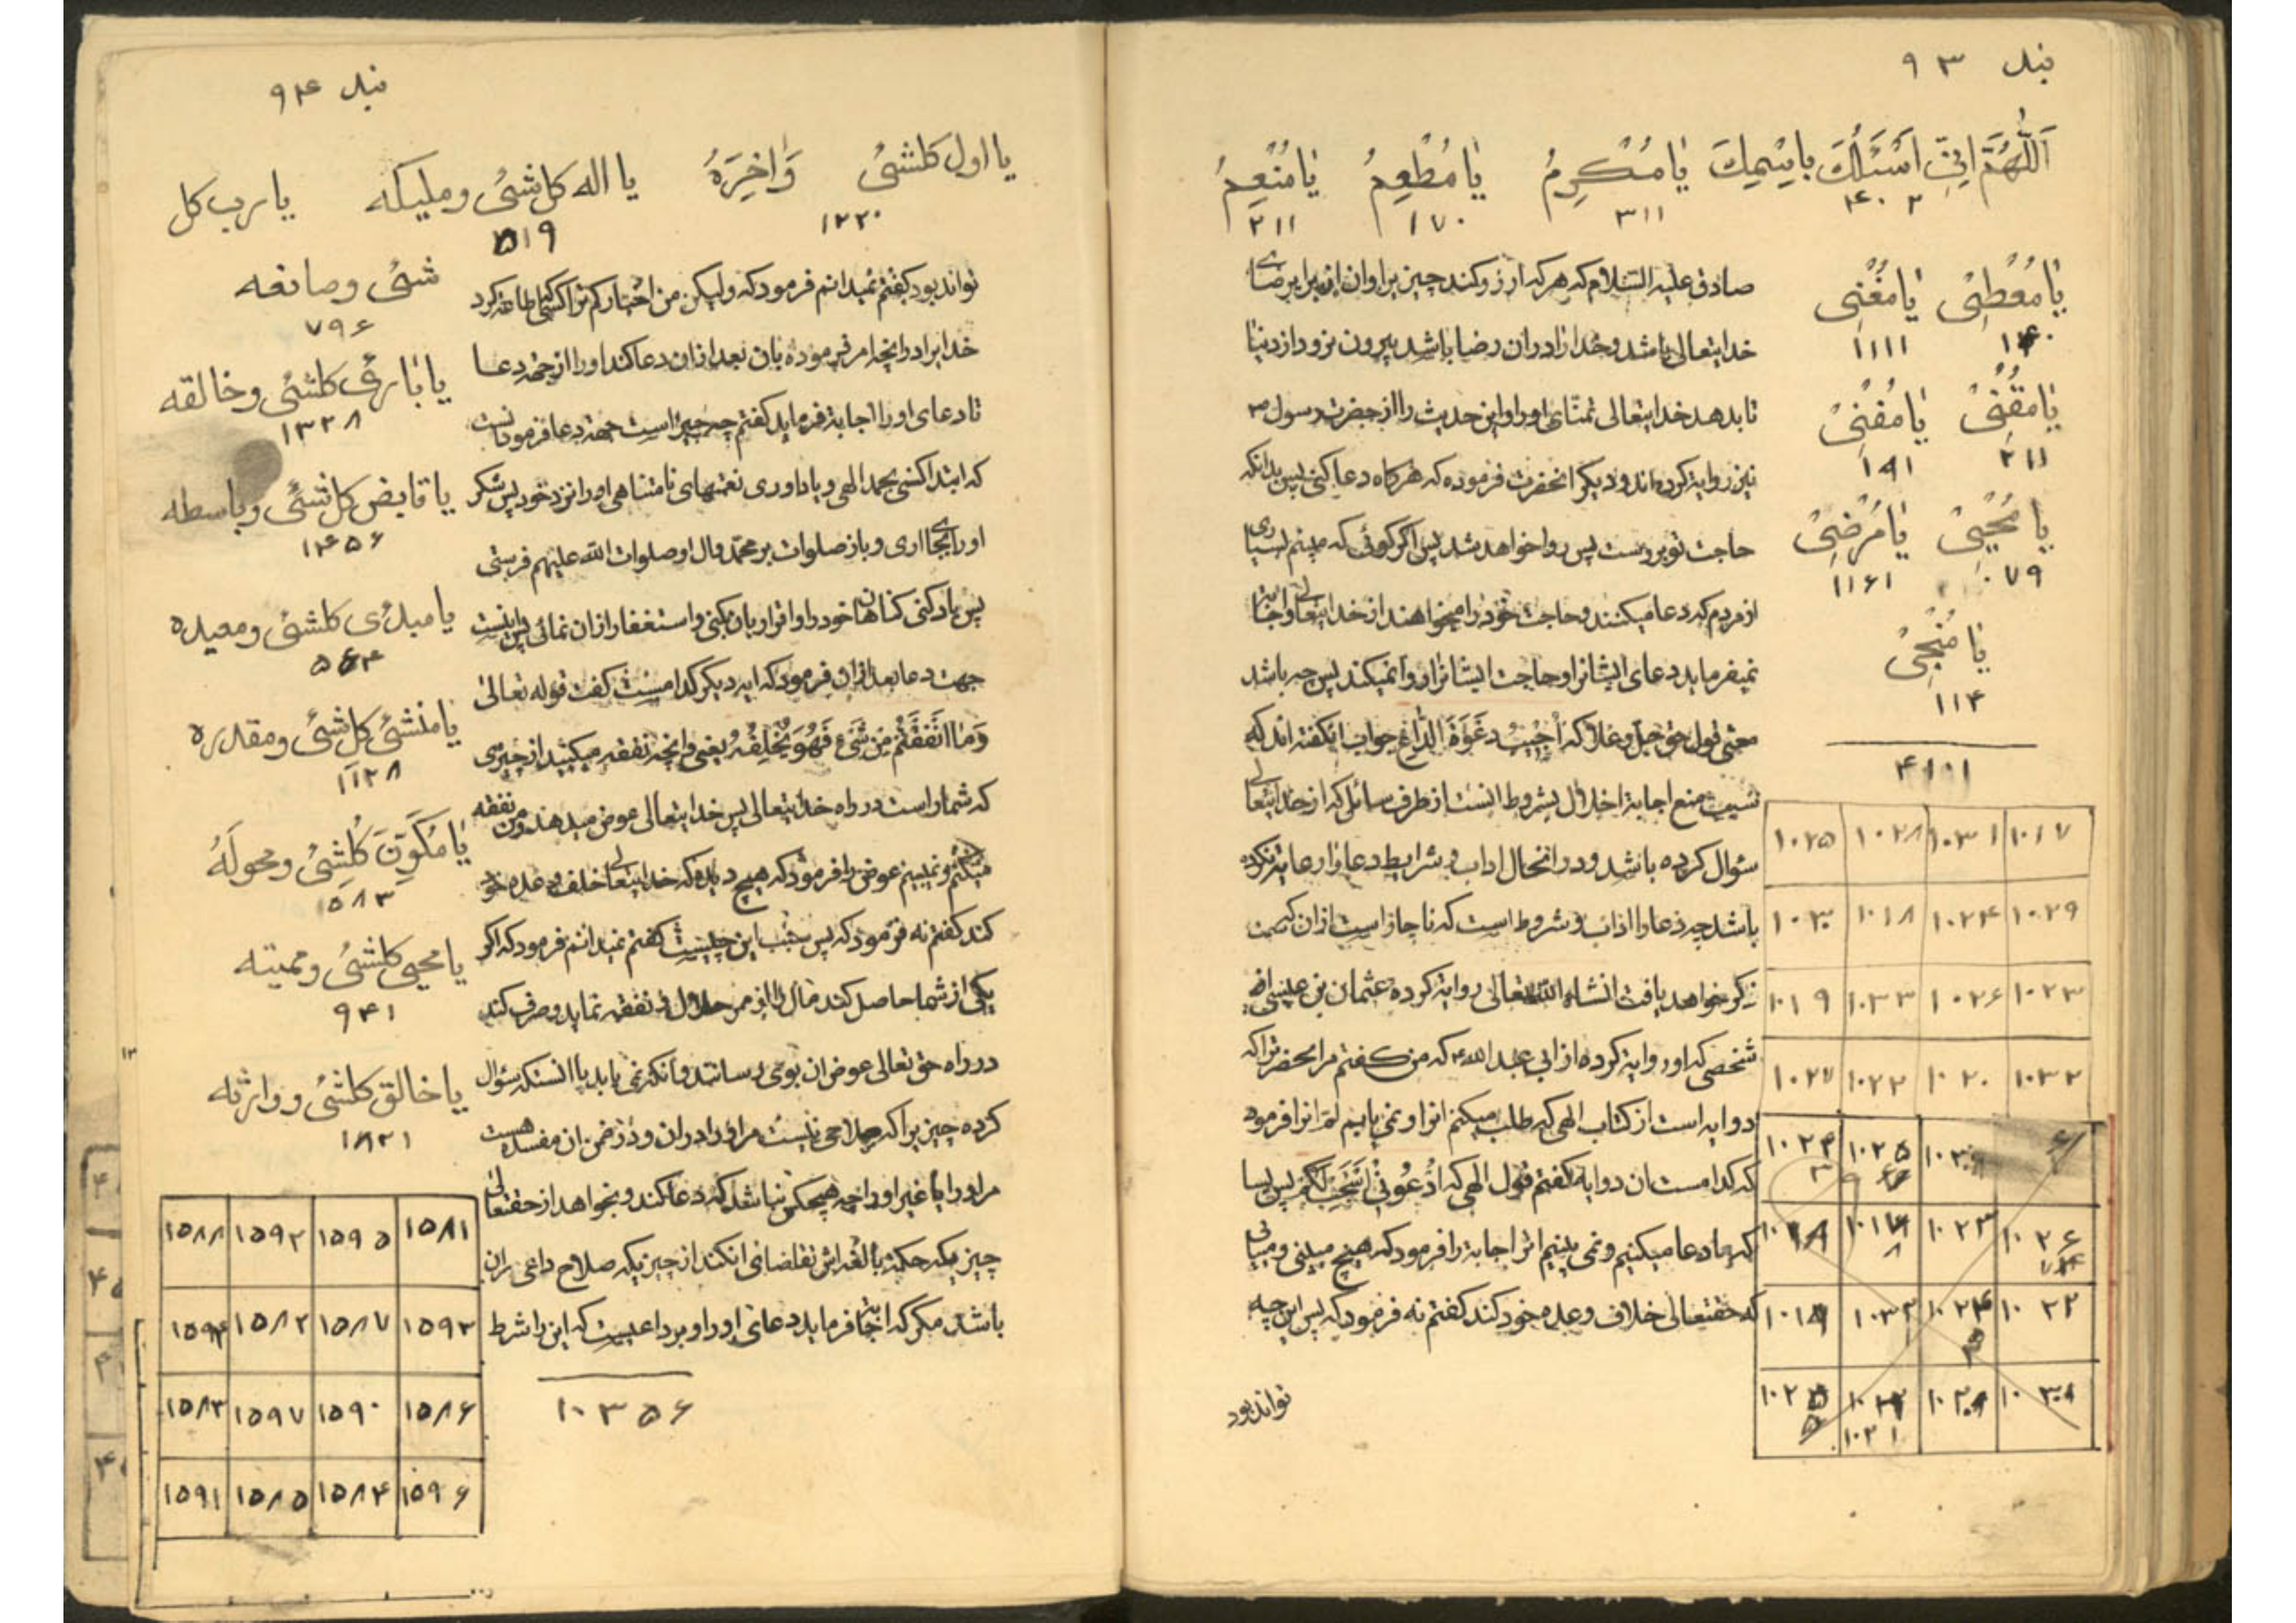 بند ۹۳
اَللّٰهُمَّ اِنّی اَسْئَلُكَ بِاسْمِكَ یا مُكْرِمُ یا مُطْعِمُ یا مُنْعِمُ
۴۰۲ ۳۱۱ ۱۷۰ ۲۱۱
یا مُعْطِیْ یا مُغْنِی
۱۱۱۱
یا مُقْنِیْ یا مُفْنِیْ
۲۱۱ ۱۹۱
یا مُحْیِیْ یا مُرْضِیْ
۰۷۹ ۱۱۶۱
یا مُنْجِیْ
۱۱۴
۴۱۱۱
صادق علیه السلام که هر که ارزو کند چیزیرا و ان چیز برضای
خدایتعالی باشد و خدا را در ان رضا باشد بیرون نرود از دنیا
تا بدهد خدایتعالی تمنّای او را و این حدیث را از حضرت رسول ص
نیز روایة کرده‌اند و دیگر انحضرت فرموده که هرگاه دعا کنی پس بدانکه
حاجت تو بر دست پس روا خواهد شد پس اگر گوئی که میبینم بسیاری
از مردم که دعا میکنند و حاجت خود را میخواهند از خدایتعالی و اجابة
نمیفرماید دعای ایشانرا و حاجت ایشانرا روا نمیکند پس چه باشد
معنی قول حق جل و علا که اُجیبُ دَعْوَةَ الدّاعِ جواب انکه گفته‌اند که
سبب منع اجابة اخلال بشروط انست از طرف سائل که از خدایتعالی
سؤال کرده باشد و در انحال اداب و شرایط دعا را رعایة نکرده
باشد چه دعا را اداب و شروط است که ناچار است از ان که سمت
ذکر خواهد یافت انشاء الله تعالی روایة کرده عثمان بن عیسی از
شخصی که او روایة کرده از ابی عبد الله ع که من گفتم مر انحضرترا که
دو ایه است از کتاب الهی که طلب میکنم انرا و نمی یابیم اثر انرا فرمود
که کدامست ان دو ایه گفتم قول الهی که اُدْعُونی اَسْتَجِبْ لَكُمْ پس بسا
که ما دعا میکنیم و نمی بینیم اثر اجابة را فرمود که هیچ میبینی و میابی
که حقتعالی خلاف وعده خود کند گفتم نه فرمود که پس این چه
تواند بود
۱۰۲۵ ۱۰۲۸ ۱۰۳۱ ۱۰۱۷
۱۰۳۰ ۱۰۱۸ ۱۰۲۴ ۱۰۲۹
۱۰۱۹ ۱۰۳۳ ۱۰۲۶ ۱۰۲۳
۱۰۲۷ ۱۰۲۲ ۱۰۲۰ ۱۰۳۲
۱۰۲۵
۱۰۲۳ ۱۰۲۶
۱۰۲۲
۱۰۲۱
بند ۹۴
یا اول كلشیُ وَاٰخِرَهُ یا اله كل شیُ وملیكه یا رب كل
۱۲۲۰ ۵۱۹
شیُ وصانعه
۷۹۶
یا بارئ كلشیُ وخالقه
۱۳۲۸
یا قابض كل شیُ وباسطه
۱۴۵۶
یا مبدئ كلشیُ ومعیده
۵۶۴
یا منشئ كل شیُ ومقدره
۱۱۲۸
یا مُكَوِّنَ كُلِّشیُ ومحولَهُ
۵۸۳
یا محیی كلشیُ وممیته
۹۴۱
یا خالق كلشیُ ووارثه
۱۸۲۱
تواند بود گفتم نمیدانم فرمود که ولیکن من اخبار کنم ترا کسیکه اطاعة کرد
خدایرا در انچه امر فرموده بان بعد از ان دعا کند او را از جهة دعا
تا دعای او را اجابة فرماید گفتم چه چیز است جهة دعا فرمود انست
که ابتدا کنی بحمد الهی و یاد اوری نعمتهای نامتناهی او را نزد خود پس شکر
او را بجا اری و باز صلوات بر محمّد وال او صلوات الله علیهم فرستی
پس یاد کنی گناهان خود را و اقرار بان کنی و استغفار از ان نمائی پس اینست
جهت دعا بعد از ان فرمود که ایه دیگر کدامست گفت قوله تعالی
وَمٰا اَنْفَقْتُمْ مِنْ شَیءٍ فَهُوَ یُخْلِفُهُ یعنی و انچه نفقه میکنید از چیزی
که شما راست در راه خدایتعالی پس خدایتعالی عوض میدهد و من نفقه
میکنم و نمیبینم عوض را فرمود که هیچ دیده که خدایتعالی خلف وعده خود
کند گفتم نه فرمود که پس سبب این چیست گفتم نمیدانم فرمود که اگر
یکی از شما حاصل کند مال را از ممر حلال و نفقه نماید و صرف کند
در راه حق تعالی عوض ان بوی رسانند و انکه نمی یابد یا انستکه سؤال
کرده چیزیرا که صلاحی نیست مر او را در ان و در ضمن ان مفسده هست
مر او را یا غیر او را چه هیچکس نباشد که دعا کند و بخواهد از حقتعالی
چیزیکه حکمة بالغه‌اش تقاضای ان کند از چیزیکه صلاح داعی در ان
باشد مگر که اجابة فرماید دعای او را و بر داعیست که این را شرط
۱۰۳۵۶
۱۵۸۸ ۱۵۹۲ ۱۵۹۵ ۱۵۸۱
۱۵۹۴ ۱۵۸۲ ۱۵۸۷ ۱۵۹۳
۱۵۸۳ ۱۵۹۷ ۱۵۹۰ ۱۵۸۶
۱۵۹۱ ۱۵۸۵ ۱۵۸۴ ۱۵۹۶